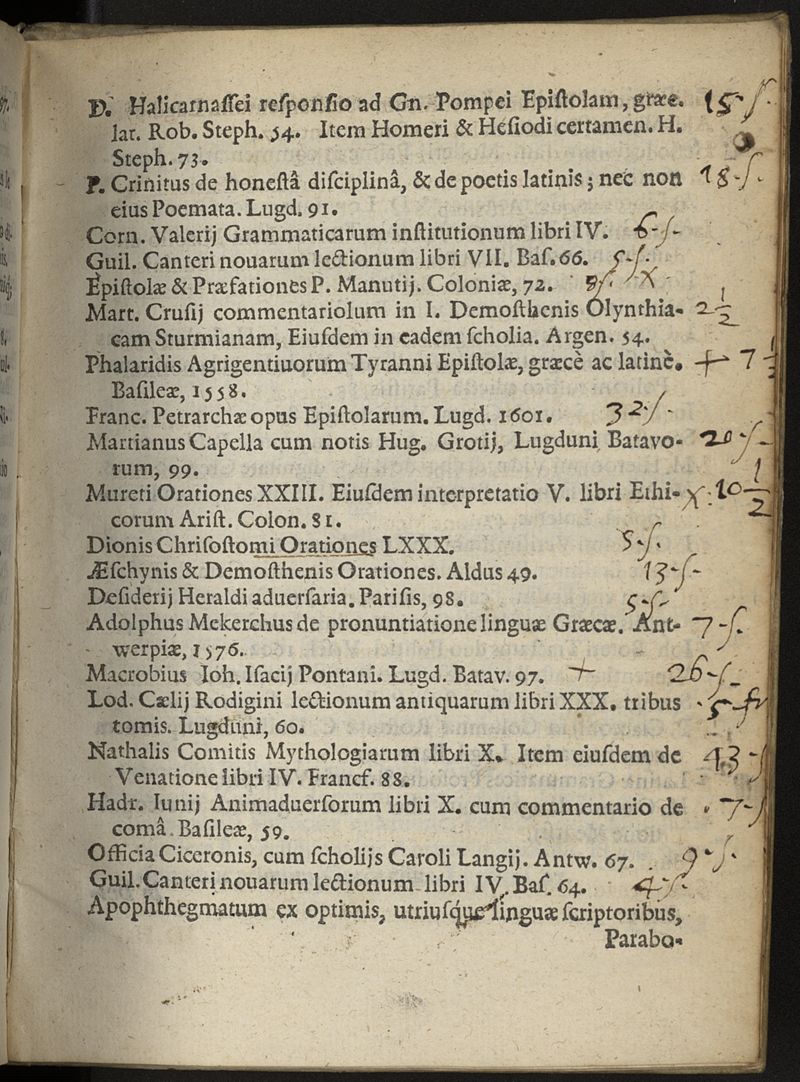 D. Halicarnaſſei reſponſio ad Gn. Pompei Epiſtolam, græc. 15 ſ
lat. Rob. Steph. 54. Item Homeri & Heſiodi certamen. H.
Steph. 73.
P. Crinitus de honeſtâ diſciplinâ, & de poetis latinis; nec non 18-ſ-
eius Poemata. Lugd. 91.
Corn. Valerij Grammaticarum inſtitutionum libri IV. 6-ſ-
Guil. Canteri nouarum lectionum libri VII. Baſ. 66. 5-ſ-
Epiſtolæ & Præfationes P. Manutij. Coloniæ, 72.
Mart. Cruſij commentariolum in I. Demoſthenis Olynthia-
cam Sturmianam, Eiuſdem in eadem ſcholia. Argen. 54.
Phalaridis Agrigentinorum Tyranni Epiſtolæ, græcè ac latinè. + 7
Baſileæ, 1558.
Franc. Petrarchæ opus Epiſtolarum. Lugd. 1601. 32ſ-
Martianus Capella cum notis Hug. Grotij, Lugduni Batavo- 20
rum, 99.
Mureti Orationes XXIII. Eiuſdem interpretatio V. libri Ethi- 10
corum Ariſt. Colon. 81.
Dionis Chriſoſtomi Orationes LXXX. 5-ſ-
Æſchynis & Demoſthenis Orationes. Aldus 49. 13-ſ-
Deſiderij Heraldi aduerſaria. Pariſis, 98. 5-ſ-
Adolphus Mekerchus de pronuntiatione linguæ Græcæ. Ant- 7-ſ.
werpiæ, 1576.
Macrobius Ioh. Iſacij Pontani. Lugd. Batav. 97. + 26-ſ-
Lod. Cælij Rodigini lectionum antiquarum libri XXX. tribus
tomis. Lugduni, 60.
Nathalis Comitis Mythologiarum libri X. Item eiuſdem de 43-ſ
Venatione libri IV. Francf. 88.
Hadr. Iunij Animaduerſorum libri X. cum commentario de 7-ſ
comâ. Baſileæ, 59.
Officia Ciceronis, cum ſcholijs Caroli Langij. Antw. 67. 9-ſ-
Guil. Canteri nouarum lectionum libri IV. Baſ. 64. 4-ſ-
Apophthegmatum ex optimis, utriuſque linguæ ſcriptoribus,
Parabo-